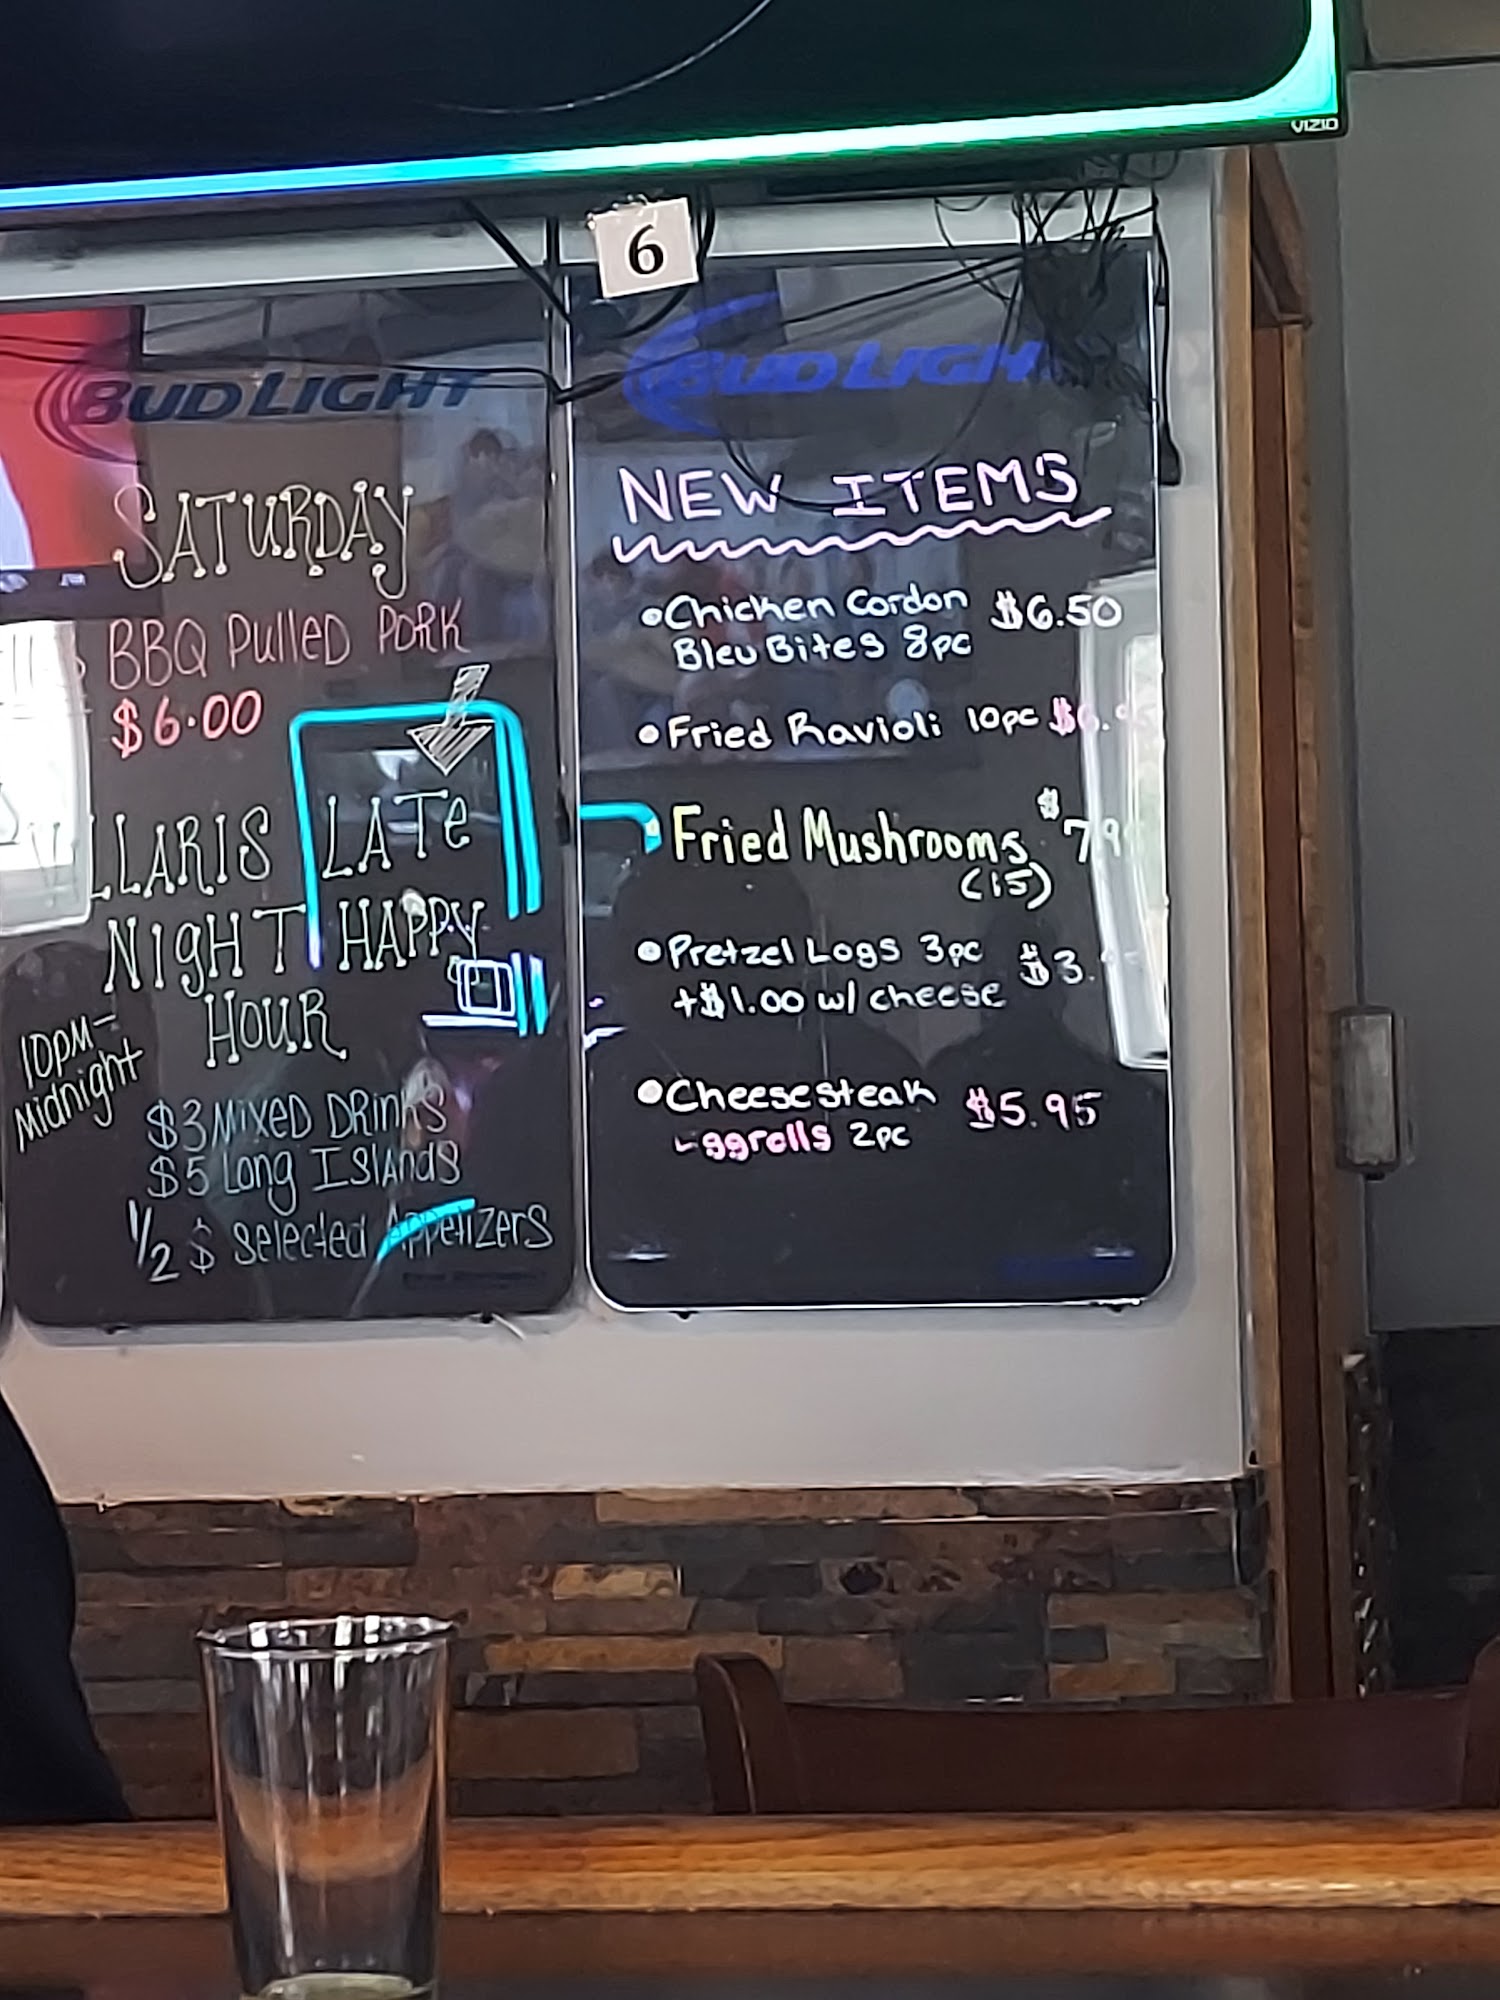 VIZIO
6
BUD LIGHT
SATURDAY
BBQ PullED PORK
$6.00
LATE
NIGHT HAPPY
HOUR
10PM-
Midnight
$3 MIXED DRINKS
$5 Long ISLANDS
1/2 $ Selected AppetIzers
BUD LIGH
NEW ITEMS
•Chicken Cordon $6.50
Bleu Bites 8pc
•Fried Ravioli 10pc $6.
Fried Mushrooms $79
(15)
•Pretzel Logs 3pc $3.
+$1.00 w/ cheese
•Cheesesteak $5.95
eggrolls 2pc